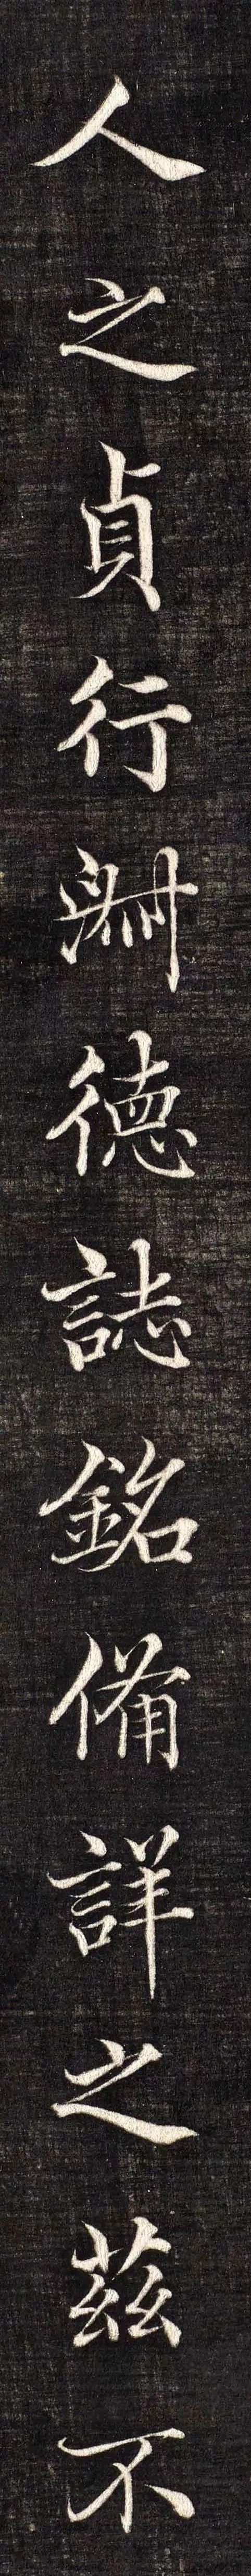 人之貞行淑德誌銘備詳之茲不